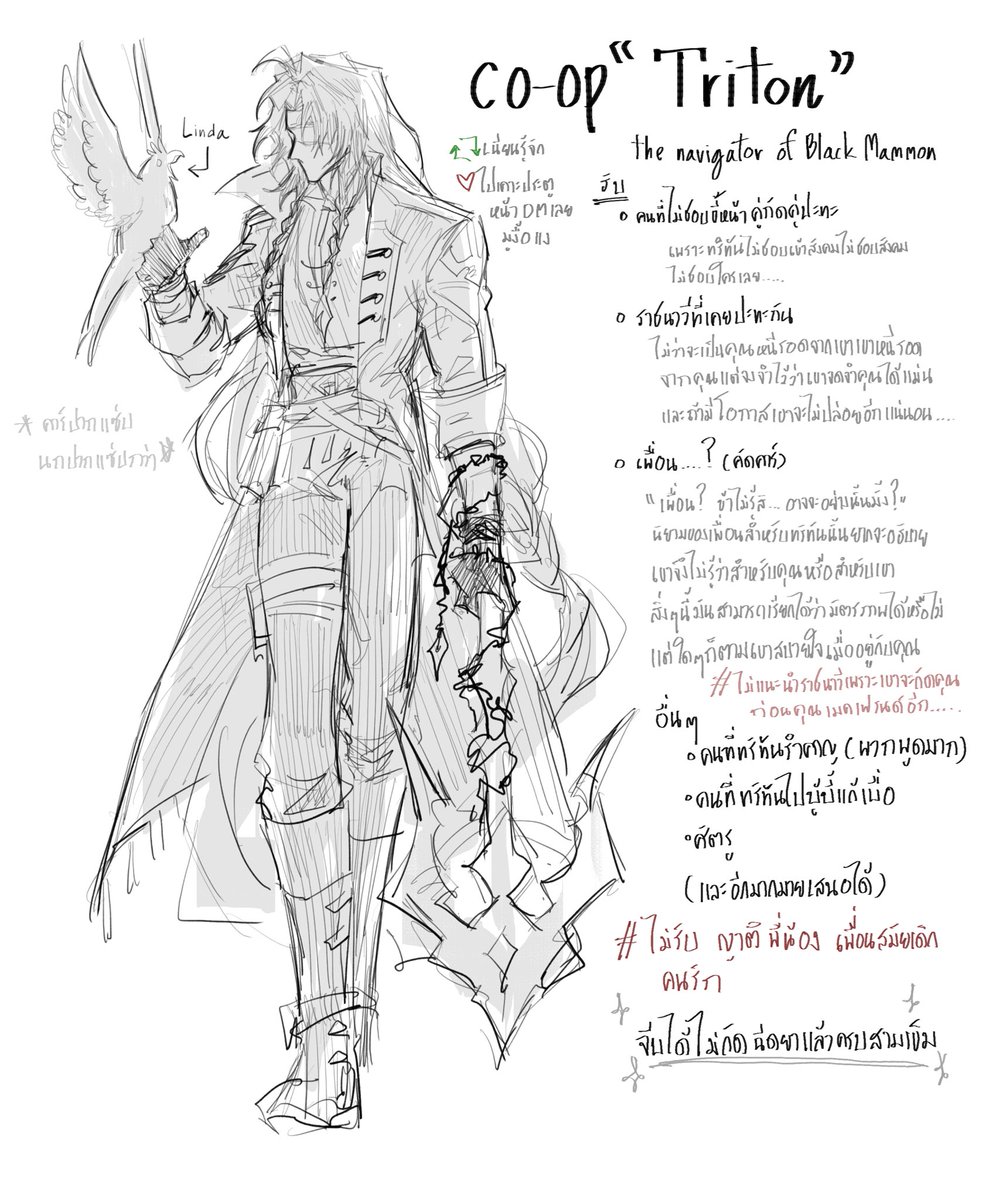 co-op "Triton"
the navigator of Black Mammon
Linda
เนียนรู้จัก
ไปเคาะประตู
หน้า DM เลย
มูงือแง
รับ
คนที่ไม่ชอบขี้หน้า คู่กัดคู่ปะทะ
เพราะทริทันไม่ชอบเข้าสังคมไม่ชอบสังคม
ไม่ชอบใครเลย.....
ราชนาวีที่เคยปะทะกัน
ไม่ว่าจะเป็นคุณหนีรอดจากเขาเขาหนีรอด
จากคุณแต่จงจำไว้ว่าเขาจดจำคุณได้แม่น
และถ้ามีโอกาสเขาจะไม่ปล่อยอีกแน่นอน....
เพื่อน....? (คัดคร่)
"เพื่อน? ข้าไม่รู้สิ... อาจจะอย่างนั้นมั้ง?"
นิยามของเพื่อนสำหรับทริทันนั้นยากจะอธิบาย
เขาจึงไม่รู้ว่าสำหรับคุณหรือสำหรับเขา
สิ่งๆนี้มันสามารถเรียกได้ว่ามิตรภาพได้หรือไม่
แต่ใดๆก็ตามเขาสบายใจเมื่ออยู่กับคุณ
#ไม่แนะนำราชนาวีเพราะเขาจะกัดคุณ
ก่อนคุณเมคเฟรนด์อีก.....
อื่นๆ
คนที่ทริทันรำคาญ (พวกพูดมาก)
คนที่ทริทันไปบู้บี้แก้เบื่อ
ศัตรู
(และอีกมากมายเสนอได้)
#ไม่รับ ญาติ พี่น้อง เพื่อนสมัยเด็ก
คนรัก
จีบได้ไม่กัด ฉีดยาแล้วครบสามเข็ม
* คาร์ปากแซ่บ
นกปากแซ่บกว่า